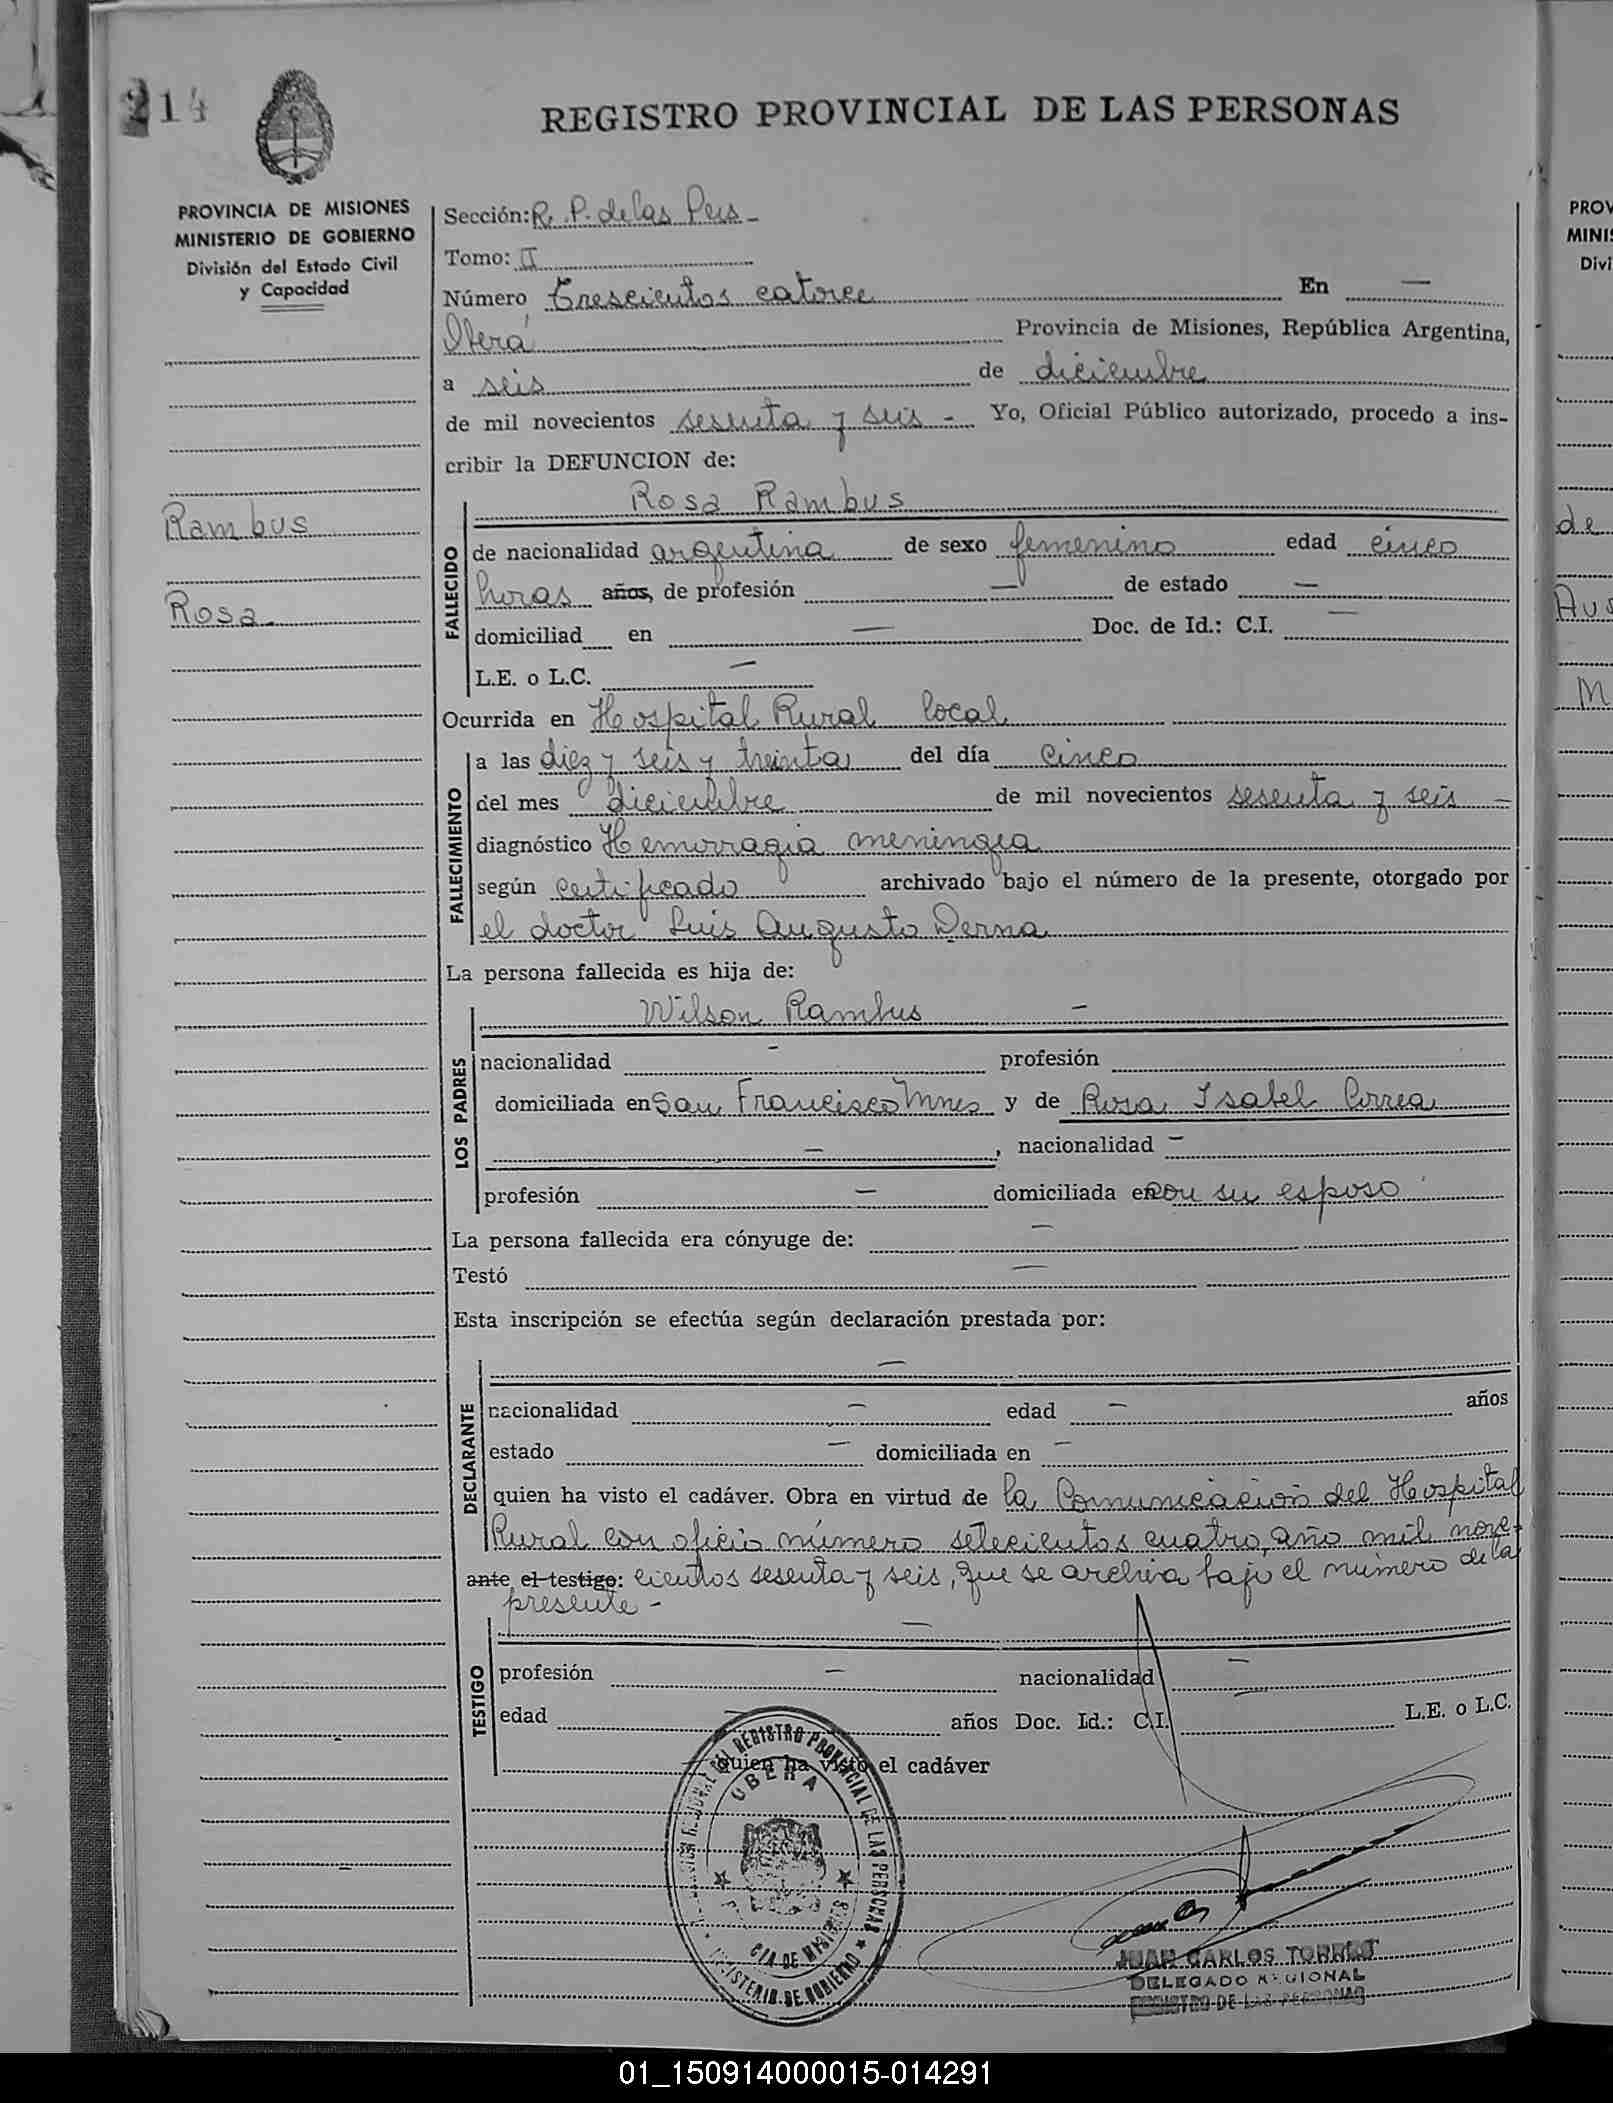 214
REGISTRO PROVINCIAL DE LAS PERSONAS
PROVINCIA DE MISIONES
MINISTERIO DE GOBIERNO
División del Estado Civil
y Capacidad
Rambus
Rosa
Sección: R. P. de las Pers
Tomo: II
Número Trescientos catorce En —
Oberá Provincia de Misiones, República Argentina,
a seis de diciembre
de mil novecientos sesenta y seis - Yo, Oficial Público autorizado, procedo a ins-
cribir la DEFUNCION de:
Rosa Rambus
FALLECIDO
de nacionalidad argentina de sexo femenino edad cinco
horas años, de profesión — de estado —
domiciliad en — Doc. de Id.: C.I. —
L.E. o L.C. —
Ocurrida en Hospital Rural local
FALLECIMIENTO
a las diez y seis y treinta del día cinco
del mes diciembre de mil novecientos sesenta y seis —
diagnóstico Hemorragia meningea
según certificado archivado bajo el número de la presente, otorgado por
el doctor Luis Augusto Derna
La persona fallecida es hija de:
LOS PADRES
Wilson Rambus —
nacionalidad - profesión
domiciliada en San Francisco Mnes y de Rosa Isabel Correa
—, nacionalidad —
profesión — domiciliada en con su esposo
La persona fallecida era cónyuge de: —
Testó —
Esta inscripción se efectúa según declaración prestada por:
DECLARANTE
—
nacionalidad — edad — años
estado — domiciliada en —
quien ha visto el cadáver. Obra en virtud de la Comunicación del Hospital
Rural con oficio número setecientos cuatro, año mil nove-
ante el testigo: cientos sesenta y seis, que se archiva bajo el número de la
presente -
TESTIGO
—
profesión — nacionalidad —
edad — años Doc. Id.: C.I. L.E. o L.C.
quien ha visto el cadáver
REGISTRO PROVINCIAL DE LAS PERSONAS
OBERA
CIA DE MISIONES
MINISTERIO DE GOBIERNO
JUAN CARLOS
DELEGADO REGIONAL
REGISTRO DE LAS PERSONAS
PROV
MINIS
Divi
de
Aus
M
01_150914000015-014291